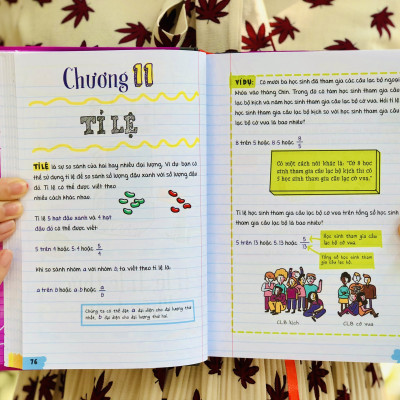 Chương 11
TỈ LỆ
TỈ LỆ là sự so sánh của hai hay nhiều đại lượng. Ví dụ bạn có
thể sử dụng tỉ lệ để so sánh số lượng đậu xanh với số lượng đậu
đỏ. Tỉ lệ có thể được viết theo
nhiều cách khác nhau.
Tỉ lệ 5 hạt đậu xanh và 4 hạt
đậu đỏ có thể được viết:
5 trên 4 hoặc 5:4 hoặc 5/4
Khi so sánh nhóm a với nhóm b, ta viết theo tỉ lệ là:
a trên b hoặc a:b hoặc a/b
Chúng ta có thể đặt: a đại diện cho đại lượng thứ
nhất, b đại diện cho đại lượng thứ hai.
76
VÍ DỤ: Có mười ba học sinh đã tham gia các câu lạc bộ ngoại
khóa vào tháng Tám. Trong đó có tám học sinh tham gia câu
lạc bộ kịch và năm học sinh tham gia câu lạc bộ cờ vua. Hỏi tỉ
lệ học sinh tham gia câu lạc bộ kịch so với học sinh tham gia câu
lạc bộ cờ vua là bao nhiêu?
8 trên 5 hoặc 8:5 hoặc 8/5
Có một cách nói khác là: "Cứ 8 học
sinh tham gia câu lạc bộ kịch thì có
5 học sinh tham gia câu lạc bộ cờ vua."
Tỉ lệ học sinh tham gia câu lạc bộ cờ vua trên tổng số học sinh
tham gia câu lạc bộ là bao nhiêu?
5 trên 13 hoặc 5:13 hoặc 5/13
Học sinh tham gia câu
lạc bộ cờ vua.
Tổng số học sinh tham
gia câu lạc bộ.
CLB kịch
CLB cờ vua